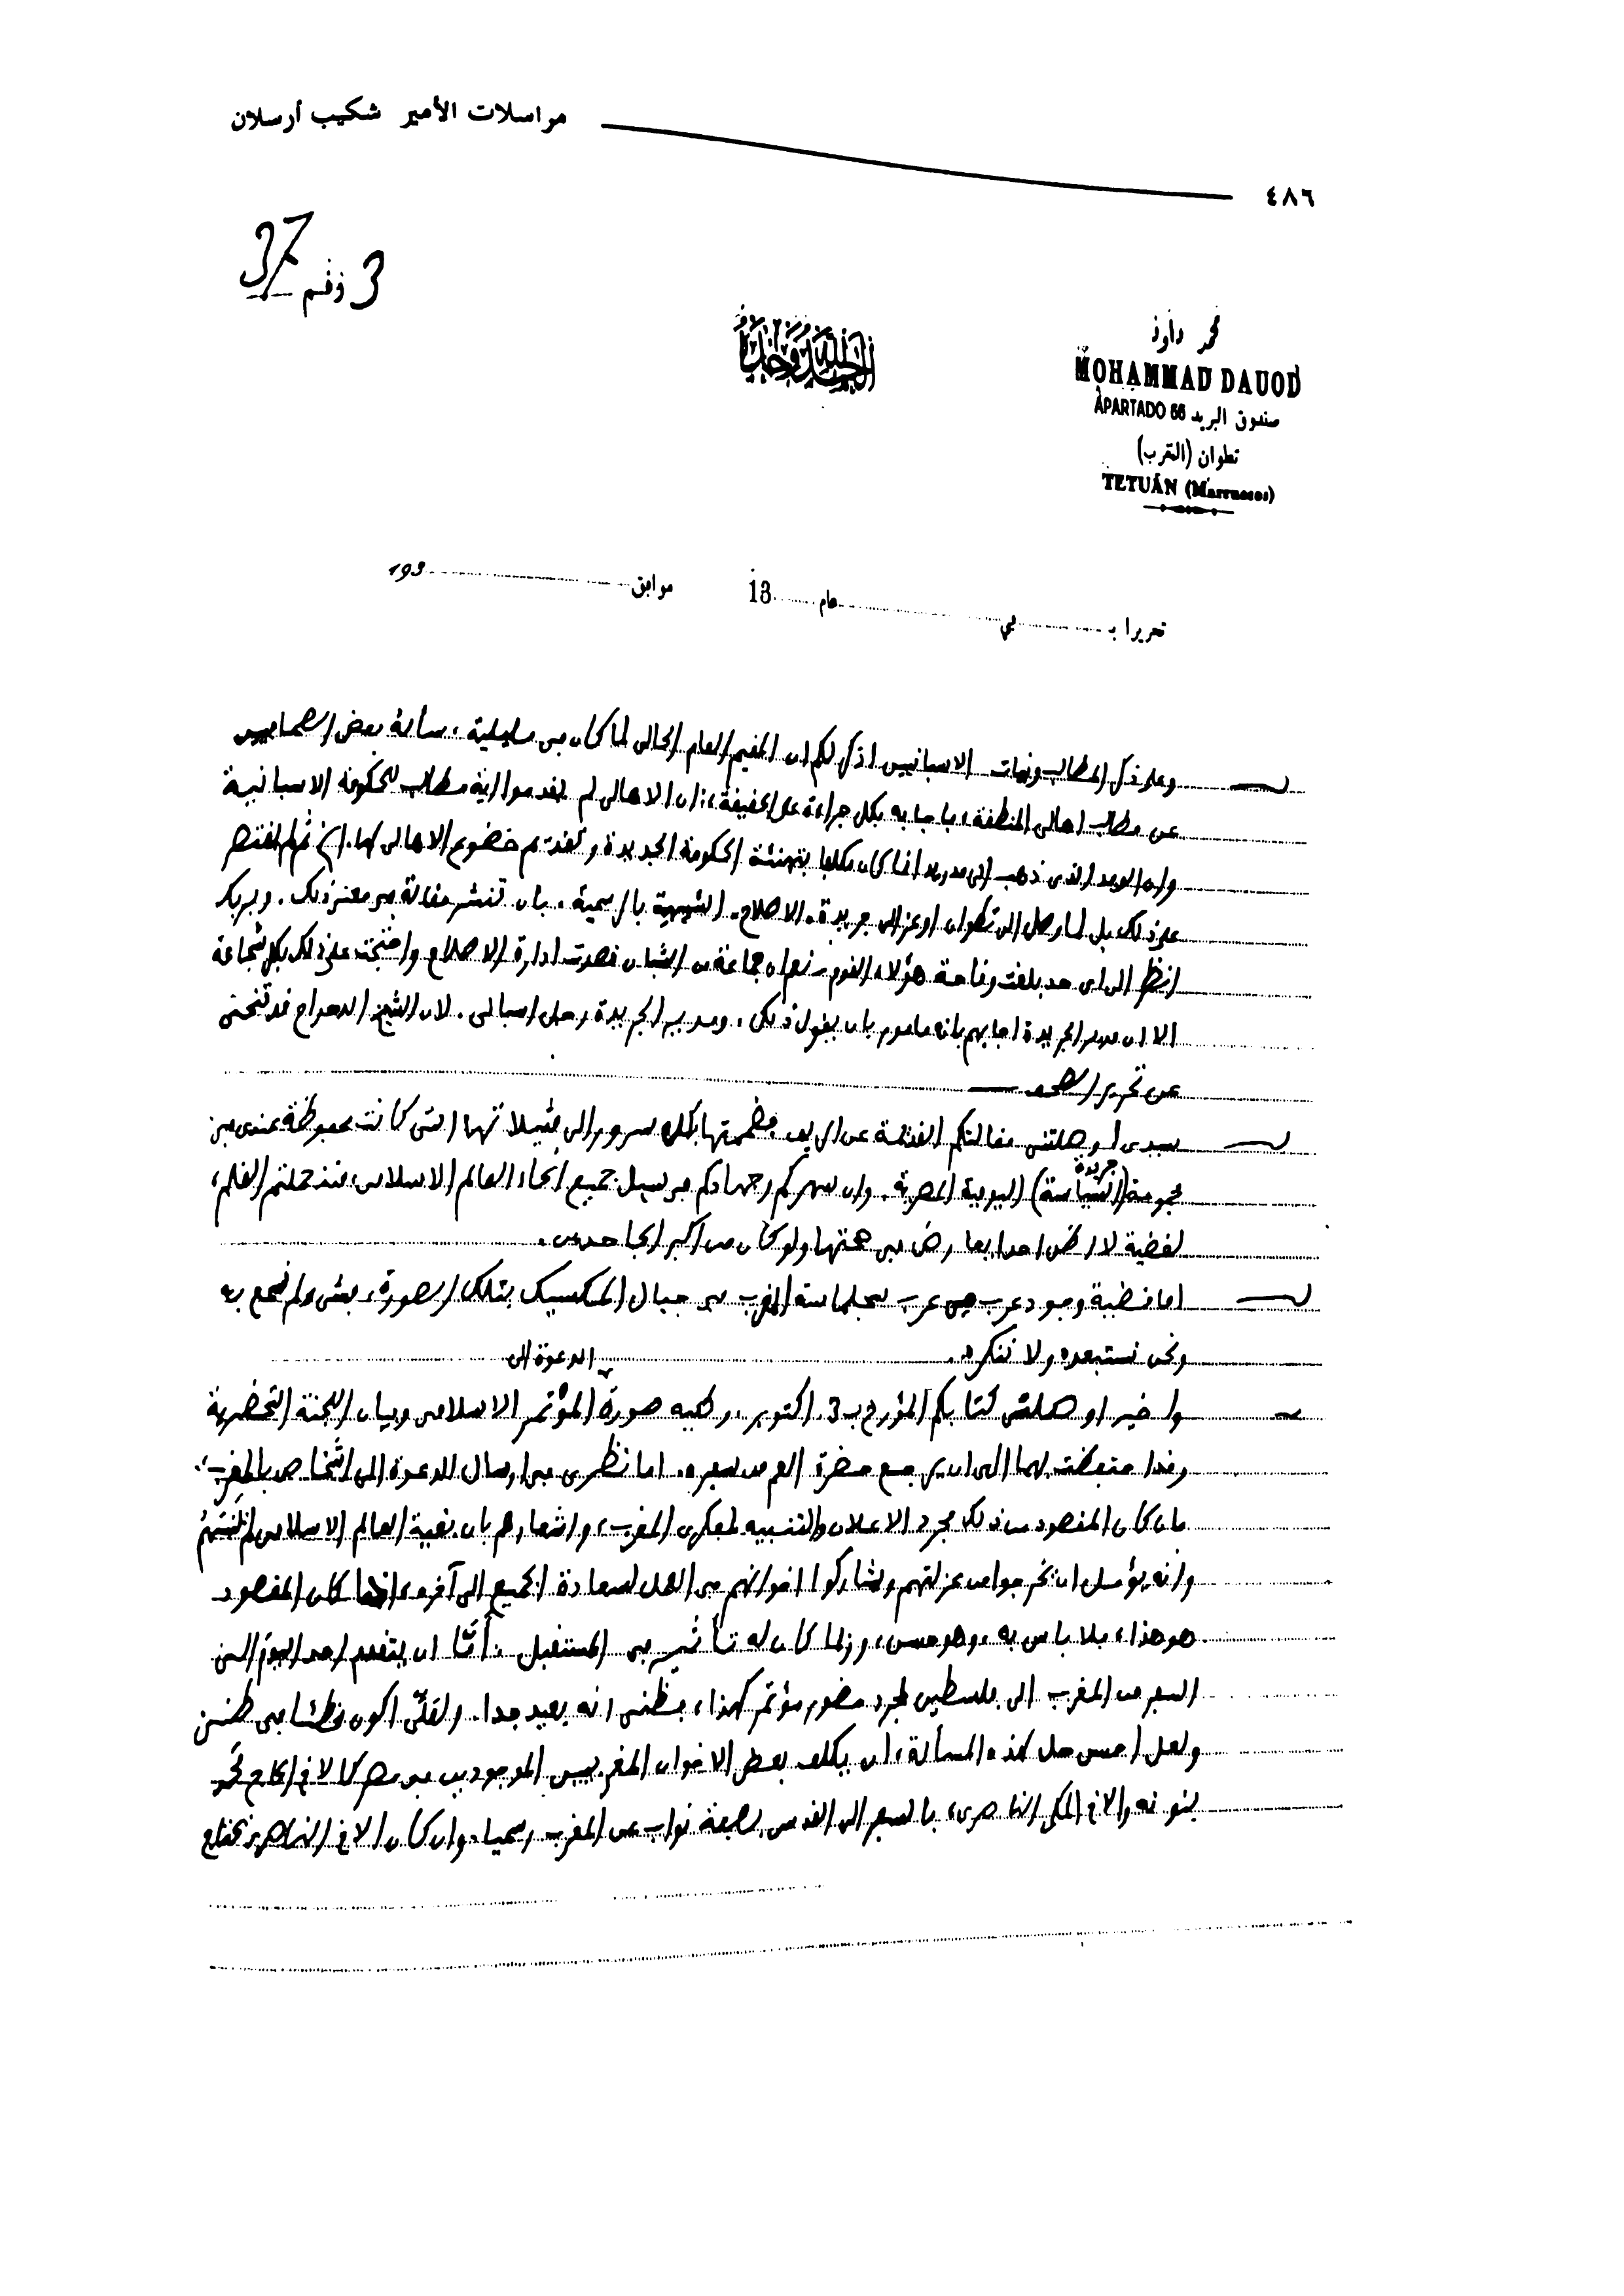 مراسلات الأمير شكيب أرسلان
٤٨٦
3 رقم 37
الحمد لله وحده
محمد داود
MOHAMMAD DAUOD
صندوق البريد APARTADO 66
تطوان (المغرب)
TETUÁN (Marruecos)
تحريرا بـ في عام 13 موافق 193
وعلى ذكر المطالب ونيات الاسبانيين اذكر لكم ان المقيم العام الحالى لما كان في مليلية، سأله بعض الصحافيين
عن مطالب اهالى المنطقة، فاجابه بكل جراءة على الحقيقة، ان الاهالى لم يقدموا اية مطالب للحكومة الاسبانية
وان الوفد الذى ذهب الى مدريد انما كان مكلفا بتهنئة الحكومة الجديدة و تقديم خضوع الاهالى لها. ثم لم يقتصر
على ذلك بل لما وصل الى تطوان اوعز الى جريدة الاصلاح. الشبيهة بالرسمية، بان تنشر مقالة في معنى ذلك. وبربك
انظر الى اى حد بلغت وقاحة هؤلاء القوم. نعم ان جماعة من الشبان قصدت ادارة الاصلاح واحتجت على ذلك بكل شجاعة
الا ان مدير الجريدة اجابهم بانه مامور بان يقول ذلك، ومدير الجريدة رجل اسبانى. لان الشيخ الدحداح قد تنحى
عن تحرير
سيدى. وصلتنى مقالتكم القيمة عن الريف فضممتها بكل سرور الى مثيلاتها التى كانت محفوظة عندى من
مجموعة جريدة (السياسة) اليومية المصرية. وان سهركم وجهادكم في سبيل جميع انحاء العالم الاسلامى منذ حملتم القلم،
لقضية لا اظن احدا يعارض في صحتها ولو كان من اكبر الجاحدين.
اما قضية وجود عرب من عرب سجلماسة المغرب في جبال المكسيك بتلك الصورة، فشىء لم نسمع به
ونحن نستبعده ولا ننكره.
واخيرا وصلتنى كتابكم المؤرخ ب 3. اكتوبر، وطيه صورة الدعوة الى المؤتمر الاسلامى وبيان اللجنة التحضيرية
وقد احتفظت بهما الى ان يرجع حضرة العم من سفره. اما نظرى في ارسال الدعوة الى اشخاص بالمغرب،
فان كان المقصود من ذلك مجرد الاعلان والتنبيه لمفكرى المغرب، واشعارهم بان بقية العالم الاسلامى لم تنسهم
وانه يؤمل ان يخرجوا من عزلتهم ويشاركوا اخوانهم في العمل لسعادة الجميع الى آخره، اذا كان المقصود
هو هذا، فلا باس به، وهو حسن، وربما كان له تأثير في المستقبل. أمّا ان يتقدم احد اليوم الى
السفر من المغرب الى فلسطين لمجرد حضور مؤتمر كهذا، فظنى انه بعيد جدا. ولعلّى اكون مخطئا في ظنى
ولعل احسن حل لهذه المسألة، ان يكلف بعض الاخوان المغربيين الموجودين في مصر كالاخ الحاج محمد
بنونه والاخ المكى الناصرى، بالسفر الى القدس بصفة نواب عن المغرب رسميا. وان كان الاخ الناصرى